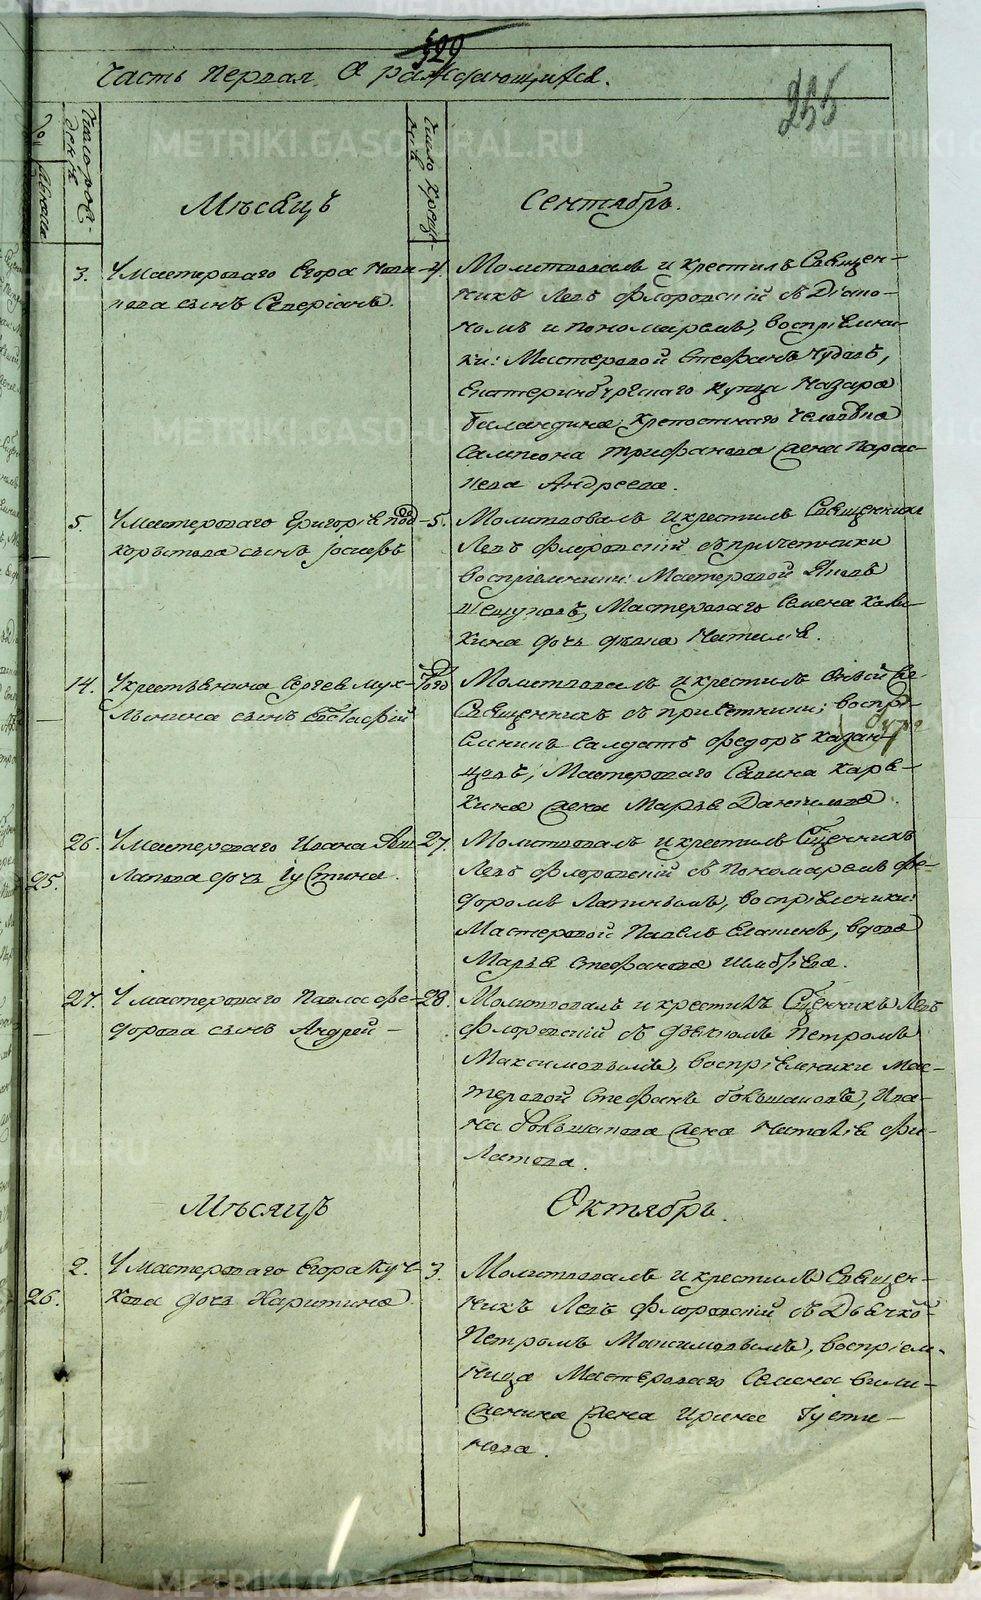 329
Часть первая О раждающихся.
255
Число рож-
денія
Число креще-
нія
Мѣсяцъ
Сентябрь.
3. У Мастероваго Егора
сынъ Северіанъ.
4. Молитвовалъ и крестилъ Священ-
никъ Левъ Флоровскій съ Діако-
номъ и пономаремъ, воспріемни-
ки: Мастеровой Стефанъ Чудовъ,
Екатеринбургскаго купца Назара
крепостнаго человѣка
Сампсона Трифанова жена Парас-
кева Андреева.
5. У Мастероваго Григорія Под-
корытова сынъ Іосифъ
5. Молитвовалъ и крестилъ Священникъ
Левъ Флоровскій съ причетники
воспріемники: Мастеровой Яковъ
Шешуковъ, Мастероваго Семена Кали-
кина дочь дѣвка Наталія.
14. У крестьянина Сергея Мух-
лынина сынъ Евстафій
Того
Молитвовалъ и крестилъ Оный же
Священникъ съ причетники; воспрі-
емникъ Солдатъ Федоръ Казан-
цовъ, Мастероваго Савина Карь-
кина жена Марья Данилова.
25.
26. У Мастероваго Ивана
дочь Іустина.
27. Молитвовалъ и крестилъ Сщенникъ
Левъ Флоровскій съ Пономаремъ Фе-
доромъ Лапинымъ, воспріемники:
Мастеровой Павелъ Елашинъ, вдова
Марья Стефанова
27. У мастероваго Павла Фе-
дорова сынъ Андрей
28. Молитвовалъ и крестилъ Сщенникъ Левъ
Флоровскій съ дьячкомъ Петромъ
Максимовымъ, воспріемники Мас-
теровой Стефанъ Бокышановъ, Ива-
на Бокышанова жена Наталія Фи-
латова.
Мѣсяцъ
Октябрь.
26.
2. У Мастероваго Егора Куч-
кова дочь Харитина
3. Молитвовалъ и крестилъ Священ-
никъ Левъ Флоровскій съ Дьячко-
Петромъ Максимовымъ, воспріем-
ница Мастероваго Семена Вили-
женина жена Ирина Іусти-
нова.
METRIKI.GASO-URAL.RU